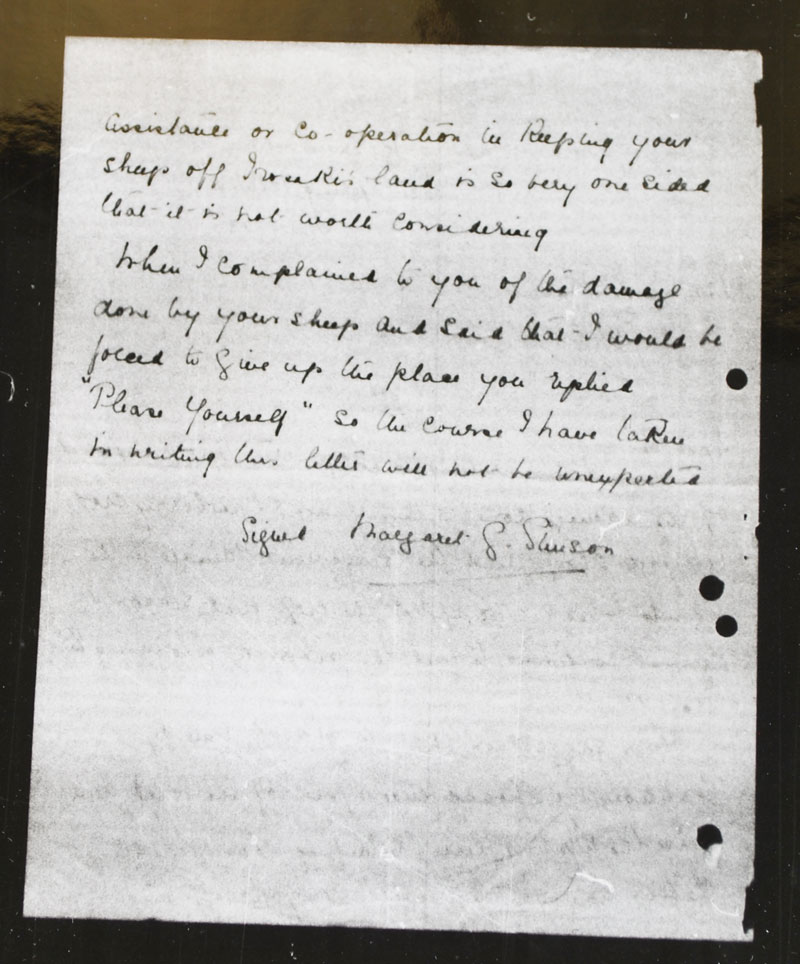 assistance or co-operation in keeping your
sheep off Iwraki's land is so very one sided
that it is not worth considering
When I complained to you of the damage
done by your sheep and said that I would be
forced to give up the place you replied
"Please Yourself" so the course I have taken
in writing this letter will not be unexpected
Signed Margaret G.